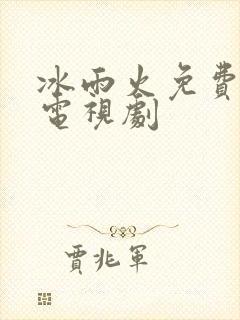 冰雨火免費
電視劇
賈兆軍